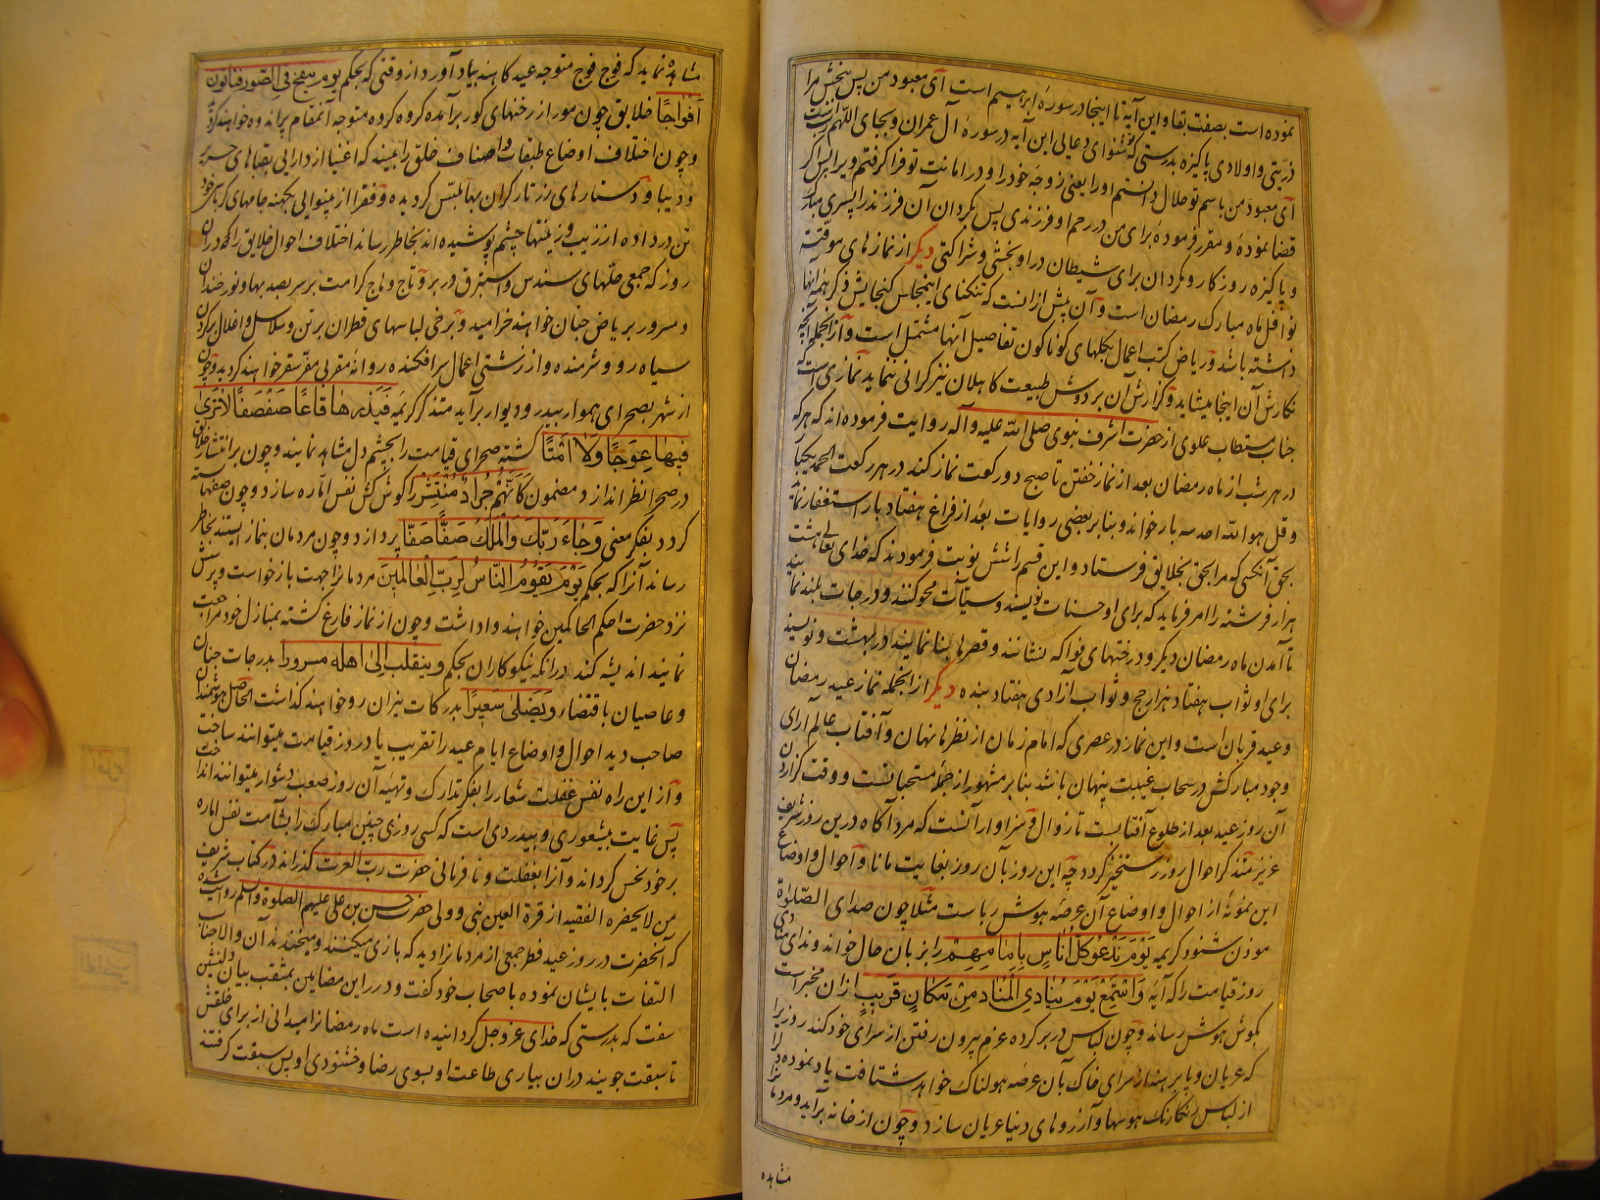 نموده است بصفت بقا و این آیه تا اینجا در سورهٔ ابراهیم است آی معبود من پس ببخش مرا
ذریتی و اولادی پاکیزه بدرستی که تو شنوای دعایی این آیه در سورهٔ آل عمران و بجای اللهم
آی معبود من باسم تو حلال دانستم او را یعنی زوجهٔ خود را و در امانت تو فرا گرفتم ویرا پس اگر
قضا نمودهٔ و مقرر فرمودهٔ برای من در رحم او فرزندی پس بگردان آن فرزند را پسری مبارک
و پاکیزه روزگار و مگردان برای شیطان در او بخشی و شراکتی دیگر از نمازهای موقتیه
نوافل ماه مبارک رمضان است و آن پیش از آنست که تنگنای این مجالس گنجایش ذکر همهٔ آنها
داشته باشد و ریاض کتب اعمال بگلهای گوناگون تفاصیل آنها مشتمل است و از آنجمله آنچه
نگارش آن اینجا میشاید و گزارش آن بر دوش طبیعت کاهلان نیز گرانی ننماید نمازی است که
جناب مستطاب علوی از حضرت اشرف نبوی صلی الله علیه و آله روایت فرموده اند که هر که
در هر شب از ماه رمضان بعد از نماز خفتن تا صبح دو رکعت نماز کند در هر رکعت الحمد یکبار
و قل هو الله احد سه بار خواند و بنا بر بعضی روایات بعد از فراغ هفتاد بار استغفار نماید
بحق آنکسی که مرا بحق بخلایق فرستاد و این قسم را شش نوبت فرمودند که خدای تعالی بیست
هزار فرشته را امر فرماید که برای او حسنات نویسند و سیآت محو کنند و درجات بلند نمایند
تا آمدن ماه رمضان دیگر و درختهای فواکه نشانند و قصرها بنا نمایند در بهشت و نویسند
برای او ثواب هفتاد هزار حج و ثواب آزادی هفتاد بنده دیگر از آنجمله نماز عید رمضان
و عید قربان است و این نماز در عصری که امام زمان از نظرها نهان و آفتاب عالم آرای
وجود مبارکش در سحاب غیبت پنهان باشد بنا بر مشهور از جمله مستحباتست و وقت گزاردن
آن روز عید بعد از طلوع آفتابست تا زوال و سزاوار آنست که مرد آگاه درین روز شریف
عزیز متذکر احوال روز رستخیز گردد چه این روز بآن روز بغایت مانا و احوال و اوضاع
این نمونهٔ از احوال و اوضاع آن عرصه هوش رباست مثلا چون صدای الصلوة
موذن شنود کریمه یَوْمَ نَدْعُو کُلَّ اُنَاسٍ بِاِمَامِهِمْ را بزبان حال خواند و ندای منادی
روز قیامت را که آیه وَاسْتَمِعْ یَوْمَ یُنَادِی الْمُنَادِ مِنْ مَکَانٍ قَرِیبٍ از آن مخبر است
بگوش هوش رساند و چون لباس در بر کرده عزم بیرون رفتن از سرای خود کند روزی را
که عریان و پا برهنه از سرای خاک بآن عرصه هولناک خواهد شتافت یاد نموده
از لباس رنگارنگ هوسها و آرزوهای دنیا عریان سازد و چون از خانه برآید و مردمان را
مشاهده
مشاهده نماید که فوج فوج متوجه عیدگاهند بیاد آورد از وقتی که بحکم یوم ینفخ فی الصور فتاتون
اَفْوَاجًا خلایق چون مور از رخنهای گور برآمده گروه گروه متوجه آنمقام پر اندوه خواهند گردید
و چون اختلاف اوضاع طبقات و اصناف خلق را بیند که اغنیا از دارایی بقباهای حریر
و دیبا و دستارهای زرتار گران بها ملبّس گردیده و فقرا از بینوایی بکهنه جامهای کرباس خود
تن در داده از زیب و زینتها چشم پوشیده اند بخاطر رساند اختلاف احوال خلایق را که در آن
روز که جمعی حلّهای سندس و استبرق در بر و تاج وهاج کرامت بر سر بصد بها و نور خندان
و مسرور بریاض جنان خواهند خرامید و برخی لباسهای قطران بر تن و سلاسل و اغلال بر گردن
سیاه رو و شرمنده و از زشتی اعمال سر افکنده روانهٔ مقر بی مفر سقر خواهند گردید و چون
از شهر بصحرای هموار بیدر و دیوار برآید متذکر کریمه فَیَذَرُهَا قَاعًا صَفْصَفًا لا تَرَیٰ
فِیهَا عِوَجًا وَلَا اَمْتًا گشته صحرای قیامت را بچشم دل مشاهد نماید و چون بر انتشار خلایق
در صحرا نظر اندازد مضمون کَاَنَّهُمْ جَرَادٌ مُنْتَشِرٌ را گوش کش نفس اماره سازد و چون صفها بسته
گردد بفکر معنی وَ جَاءَ رَبُّکَ وَ الْمَلَکُ صَفًّا صَفًّا پردازد و چون مردمان بنماز ایستند بخاطر
رساند آنرا که بحکم یَوْمَ یَقُومُ النَّاسُ لِرَبِّ الْعَالَمِینَ مردمانرا جهت بازخواست و پرسش
نزد حضرت احکم الحاکمین خواهند واداشت و چون از نماز فارغ گشته بمنازل خود مراجعت
نمایند اندیشه کند در آنکه نیکوکاران بحکم و ینقلب الیٰ اهله مسرورا بدرجات جنان
و عاصیان باقتضاء و یَصْلَیٰ سَعِیرًا بدرکات نیران رو خواهند گذاشت الحاصل هوشمندان
صاحب دید احوال و اوضاع ایام عید را تقریب یاد روز قیامت میتوانند ساخت
و از این راه نفس غفلت شعار را بفکر تدارک و تهیهٔ آن روز صعب دشوار میتوانند انداخت
پس غایت بیشعوری و بیدردی است که کسی روزی چنین مبارک را بشآمت نفس اماره
بر خود نحس گرداند و آنرا بغفلت و نافرمانی حضرت رب العزت گذراند در کتاب شریف
من لا یحضره الفقیه از قرة العین نبی و ولی حضرت حسن بن علی علیهم الصلوة والسلم روایت شده
که آنحضرت در روز عید فطر جمعی از مردمانرا دید که بازی میکنند و میخندند آن والاجناب
التفات بایشان نموده باصحاب خود گفت و درر این مضامین بمثقب بیان دلنشین
سفت که بدرستی که خدای عز و جل گردانیده است ماه رمضانرا میدانی از برای خلقش
تا سبقت جویند در آن بیاری طاعت او بسوی رضا و خشنودی او پس سبقت گرفتند